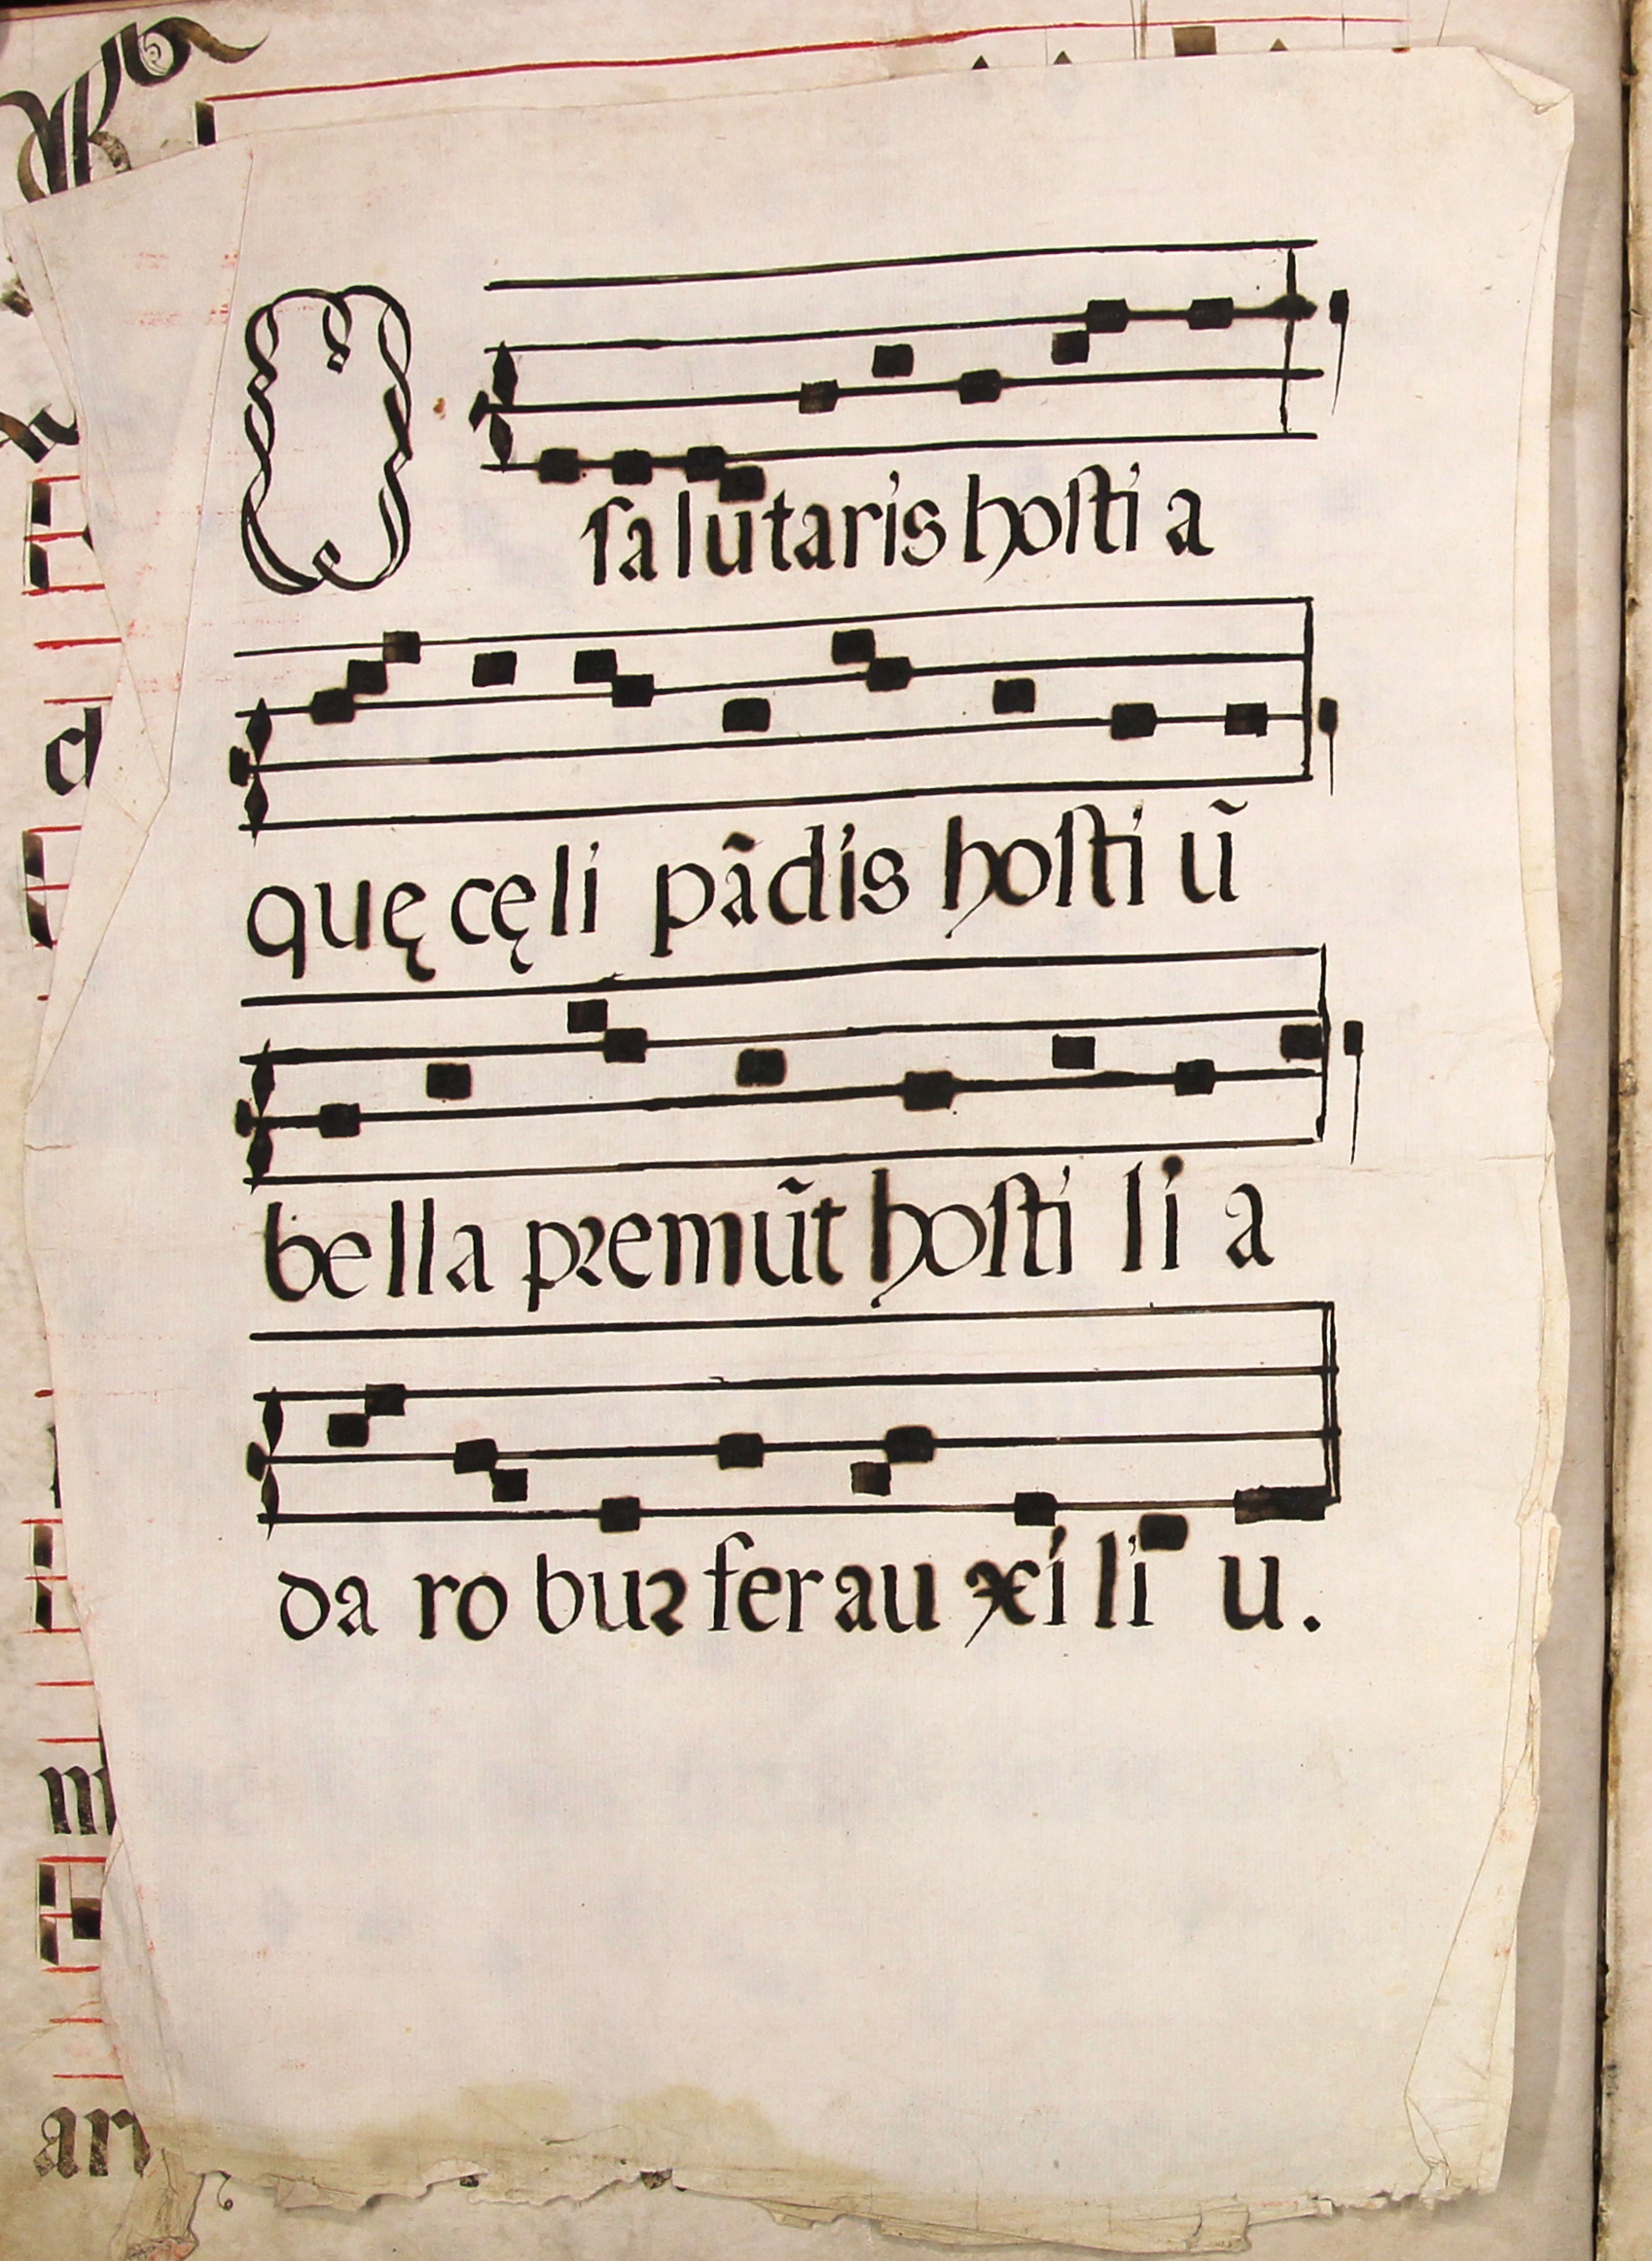 O salutaris hosti a
quę cęli pãdis hosti ũ
bella premũt hosti li a
da ro bur fer au xi li u.
d
m
an